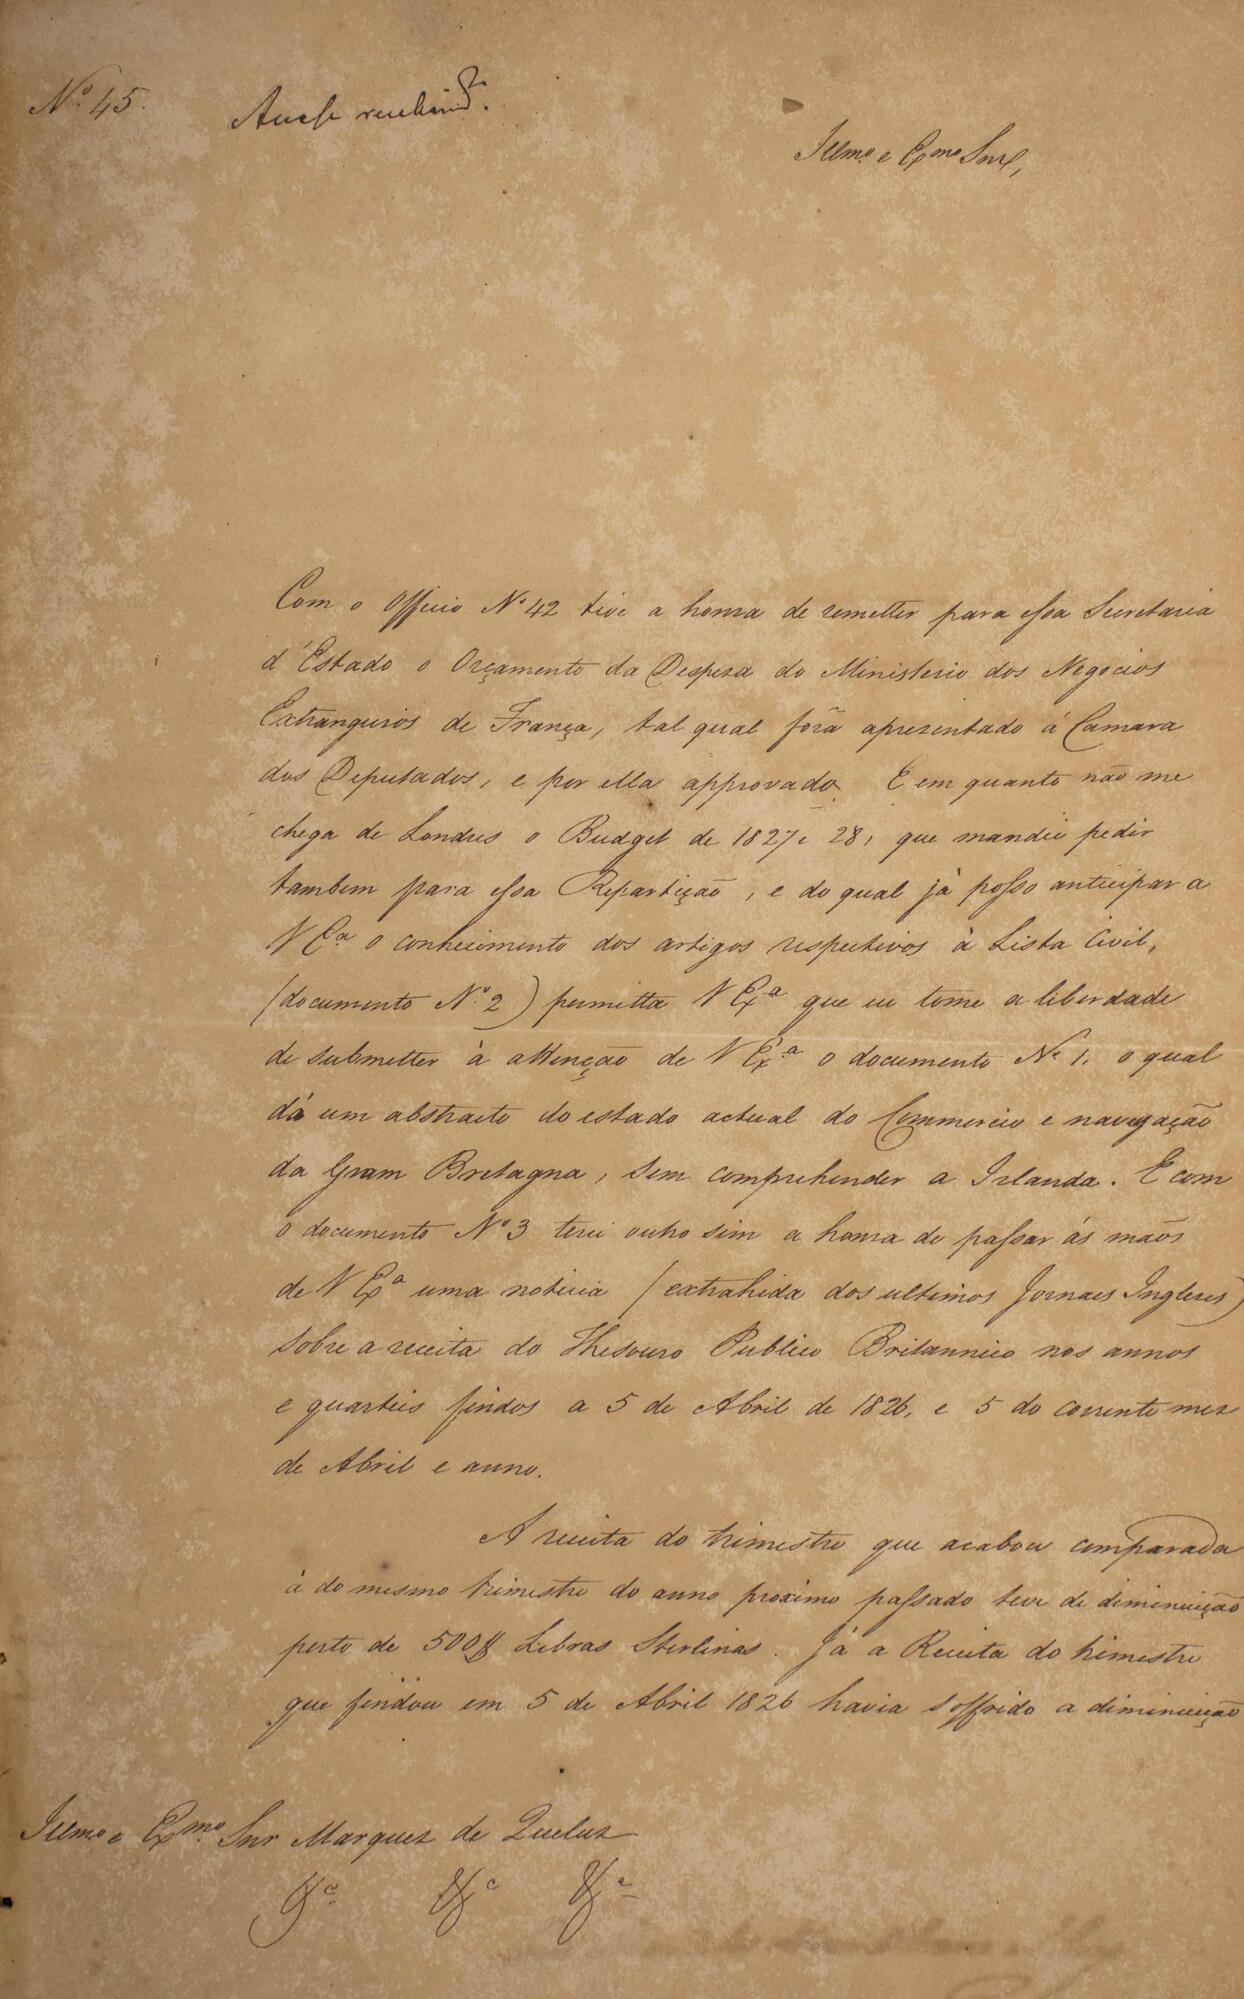 Nº 45.
Illmº e Exmº Snr,
Com o Officio Nº 42 tive a honra de remetter para essa Secretaria
d'Estado o Orçamento da Despeza do Ministerio dos Negocios
Extrangeiros de França, tal qual fôra aprezentado á Camara
dos Deputados, e por ella approvado. E em quanto não me
chega de Londres o Budget de 1827 e 28, que mandei pedir
tambem para essa Repartição, e do qual já posso anticipar a
V Exª o conhecimento dos artigos respectivos à Lista Civil,
(documento Nº 2) permitta V Exª que eu tome a liberdade
de submetter à attenção de V Exª o documento Nº 1. o qual
dá um abstracto do estado actual do Commercio e navegação
da Gram Bretagna, sem comprehender a Irlanda. E com
o documento Nº 3 terei outro sim a honra de passar ás mãos
de V Exª uma noticia (extrahida dos ultimos Jornaes Inglezes)
sobre a receita do Thesouro Publico Britannico nos annos
e quarteis findos a 5 de Abril de 1826, e 5 do corrente mez
de Abril e anno.
A receita do trimestre que acabou comparada
à do mesmo trimestre do anno proximo passado teve de diminuição
perto de 500$ Libras Sterlinas. Já a Receita do trimestre
que findou em 5 de Abril 1826 havia soffrido a diminuição
Illmº e Exmº Snr Marquez de Queluz
&ª &ª &ª